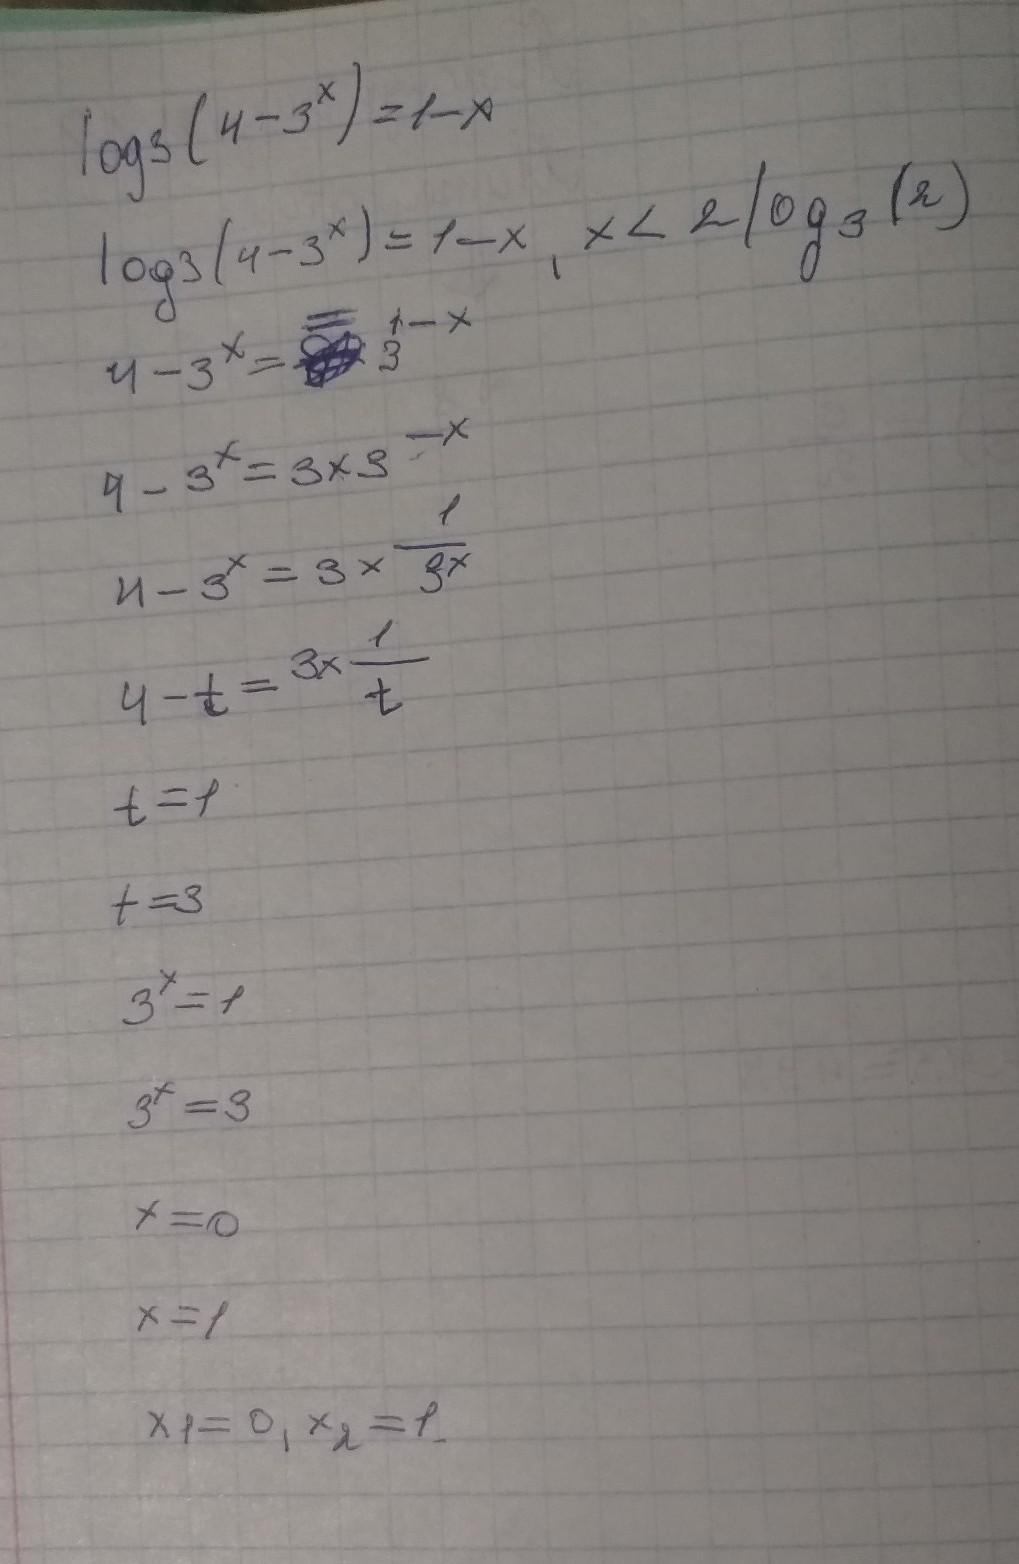 log₃(4-3ˣ)=1-x
log₃(4-3ˣ)=1-x, x<2log₃(2)
4-3ˣ= 3¹⁻ˣ
4-3ˣ=3×3⁻ˣ
4-3ˣ=3×1/3ˣ
4-t=3×1/t
t=1
t=3
3ˣ=1
3ˣ=3
x=0
x=1
x1=0, x₂=1